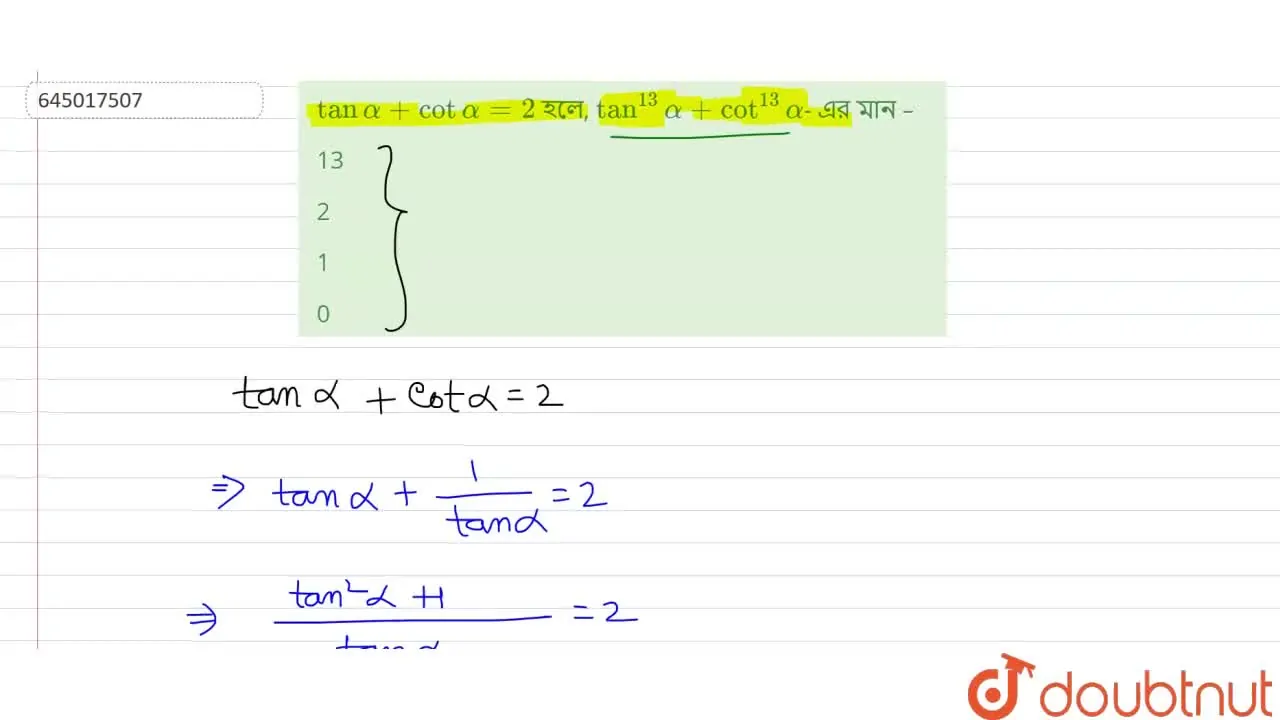 645017507
tan α + cot α = 2 হলে, tan¹³ α + cot¹³ α- এর মান –
13
2
1
0
tan α + cot α = 2
⇒ tan α + 1/tan α = 2
⇒ tan² α + 1 / tan α = 2
doubtnut